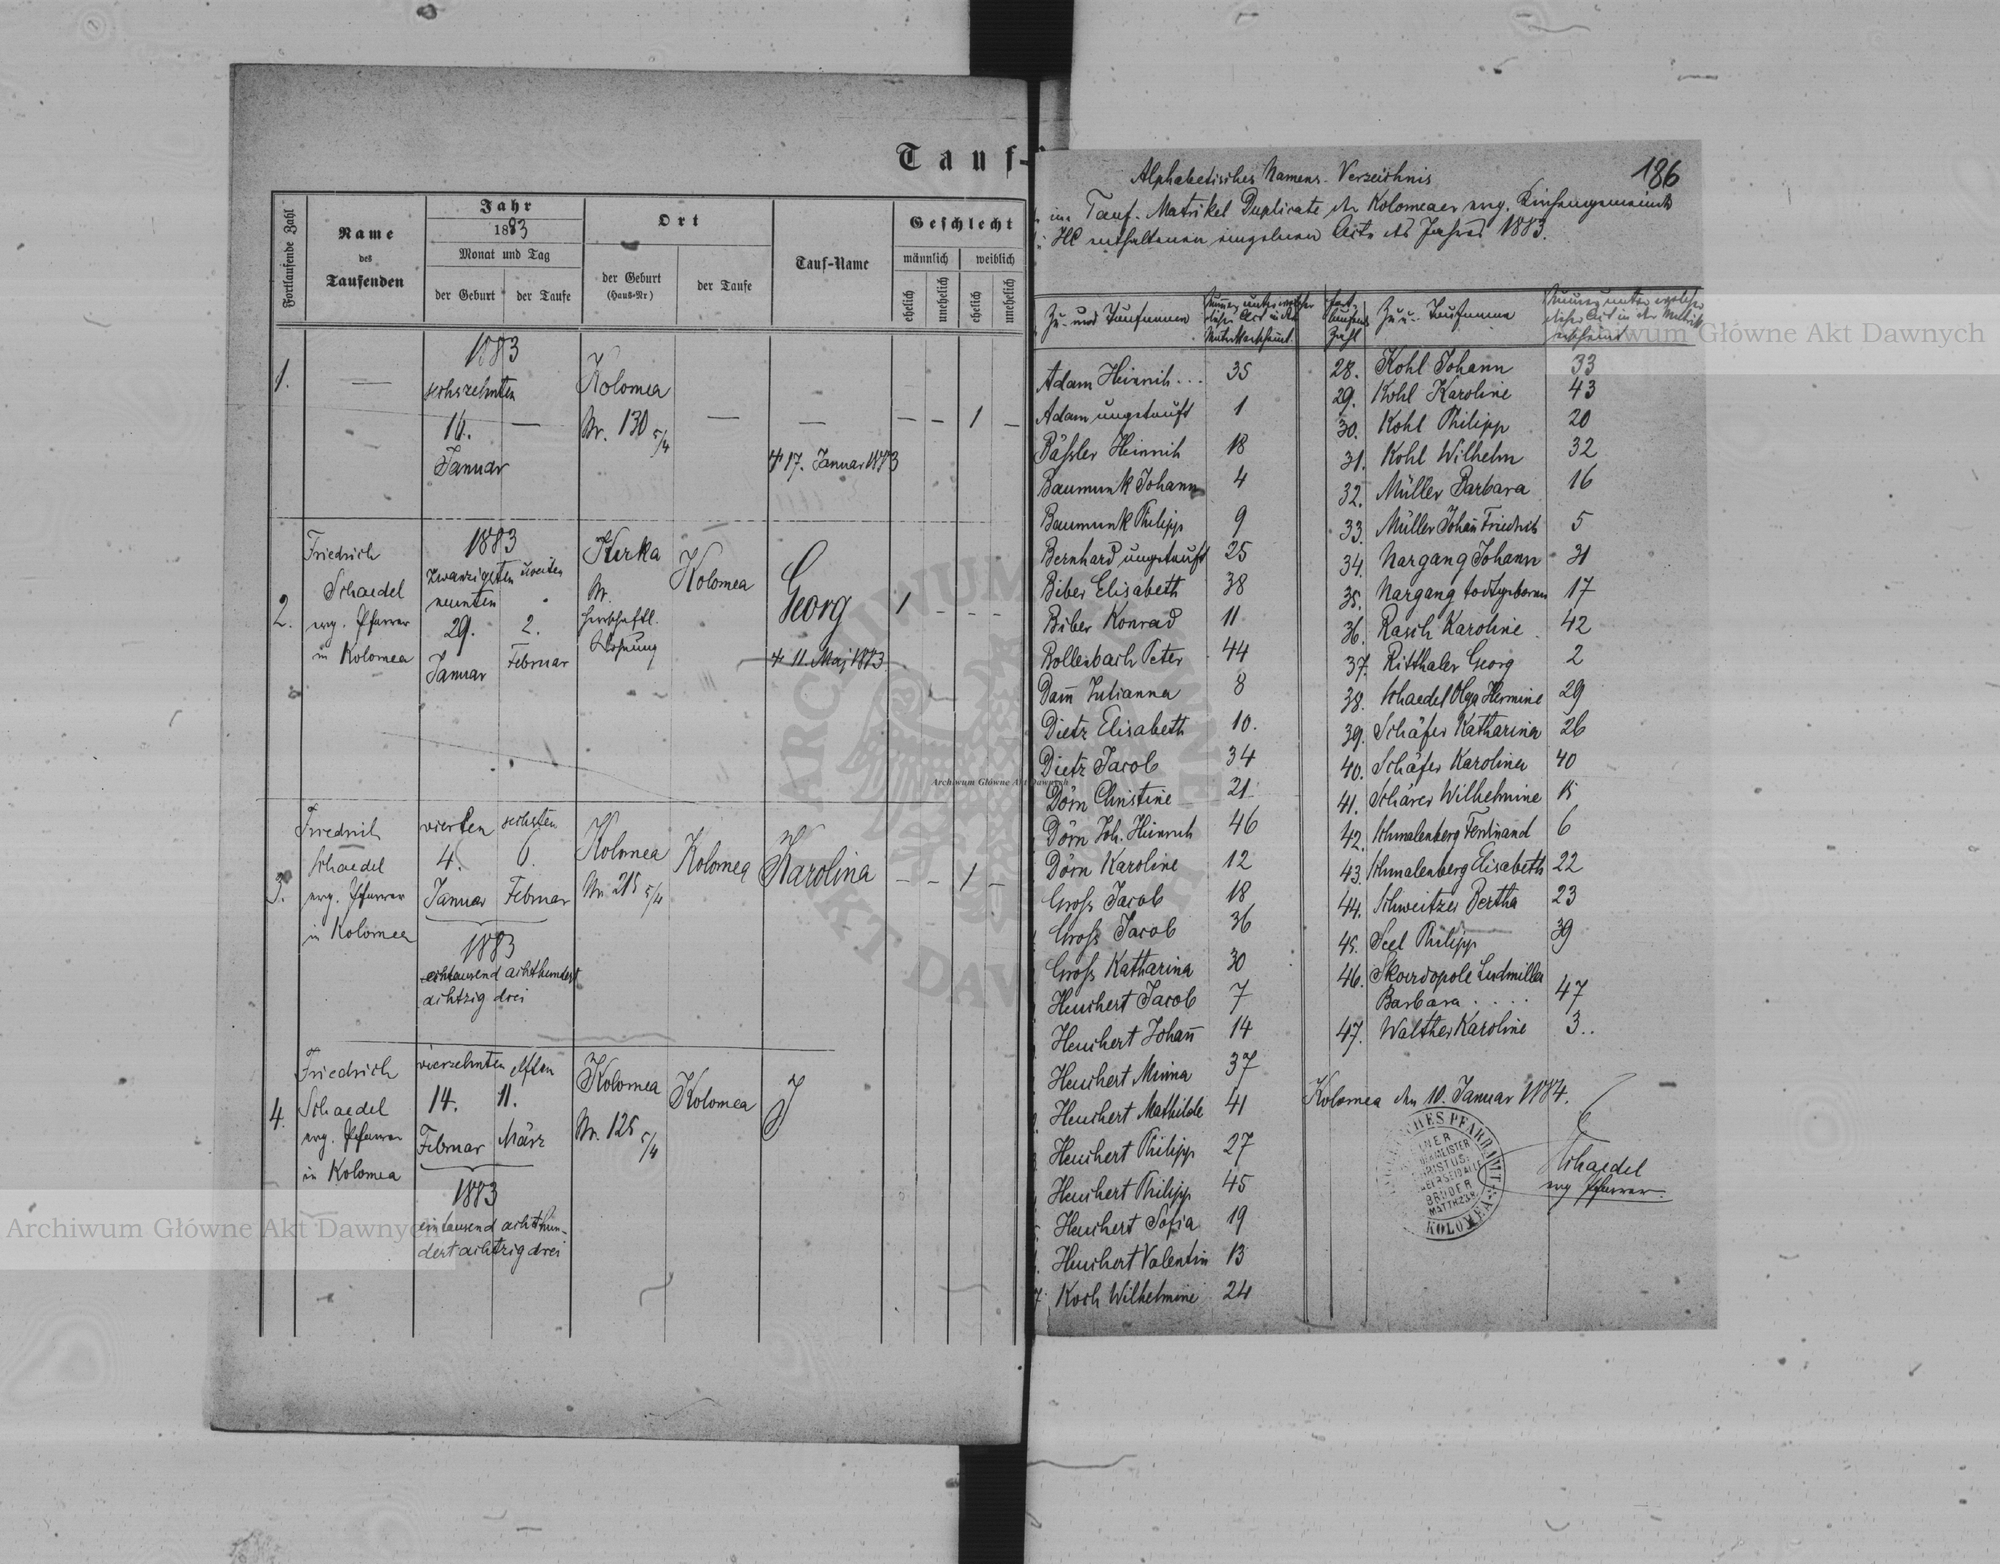 Tauf-
Fortlaufende Zahl
Name
des
Taufenden
Jahr
1883
Monat und Tag
der Geburt
der Taufe
Ort
der Geburt
(Haus-Nr)
der Taufe
Tauf-Name
Geschlecht
männlich
weiblich
ehelich
unehelich
ehelich
unehelich
1.
—
1883
sechszehnten
16. —
Januar
Kolomea
Nr. 130 5/4
—
—
† 17. Januar 1883
— — 1 —
2.
Friedrich
Schaedel
evg. Pfarrer
in Kolomea
1883
zwanzigsten zweiten
neunten
29. 2.
Januar Februar
Korka
Nr.
herrschaftl.
Wohnung
Kolomea
Georg
† 11. Mai 1883
1 - - -
3.
Friedrich
Schaedel
evg. Pfarrer
in Kolomea
vierten sechsten
4. 6.
Januar Februar
1883
eintausend achthundert
achtzig drei
Kolomea
Nr. 215 5/4
Kolomea
Karolina
— - 1 —
4.
Friedrich
Schaedel
evg. Pfarrer
in Kolomea
vierzehnten elften
14. 11.
Februar März
1883
eintausend achthun-
dert achtzig drei
Kolomea
Nr. 125 5/4
Kolomea
J
186
Alphabetisches Namens-Verzeichnis
im Tauf-Matrikel Duplicate der Kolomeaer evg. Kirchengemeinde
HC enthaltenen einzelnen Acte des Jahres 1883.
Zu- und Taufnamen
Nummer unter welcher
dieser Act in der
Matrik erscheint
Fort-
laufende
Zahl
Zu u. Taufname
Nummer unter welcher
dieser Act in der Matrik
erscheint
Adam Heinrich ... 35
Adam ungetauft 1
Bäßler Heinrich 18
Baumunk Johann 4
Baumunk Philipp 9
Bernhard ungetauft 25
Biber Elisabeth 38
Biber Konrad 11
Bollenbach Peter 44
Dam̄ Julianna 8
Dietz Elisabeth 10.
Dietz Jacob 34
Dörn Christine 21
Dörn Joh. Heinrich 46
Dörn Karoline 12
Groß Jacob 18
Groß Jacob 36
Groß Katharina 30
Heuchert Jacob 7
Heuchert Johan̄ 14
Heuchert Minna 37
Heuchert Mathilde 41
Heuchert Philipp 27
Heuchert Philipp 45
Heuchert Sofia 19
Heuchert Valentin 13
Koch Wilhelmine 24
28. Kohl Johann 33
29. Kohl Karoline 43
30. Kohl Philipp 20
31. Kohl Wilhelm 32
32. Müller Barbara 16
33. Müller Johan̄ Friedrich 5
34. Nargang Johann 31
35. Nargang todtgeboren 17
36. Rasch Karoline 42
37. Ritthaler Georg 2
38. Schaedel Olga Hermine 29
39. Schäfer Katharina 26
40. Schäfer Karolina 40
41. Schärer Wilhelmine 15
42. Schmalenberg Ferdinand 6
43. Schmalenberg Elisabeth 22
44. Schweitzer Bertha 23
45. Seel Philipp 39
46. Skowdopole Ludmilla
Barbara .... 47
47. Walther Karoline 3..
Kolomea den 10. Januar 1884.
Schaedel
evg. Pfarrer.
PFARRAMT
EINER
MEISTER
CHRISTUS
BRÜDER
MATTH 23.8
KOLOMEA
Archiwum Główne Akt Dawnych
Archiwum Główne Akt Dawnych
Archiwum Główne Akt Dawnych
ARCHIWUM GŁÓWNE AKT DAWNYCH